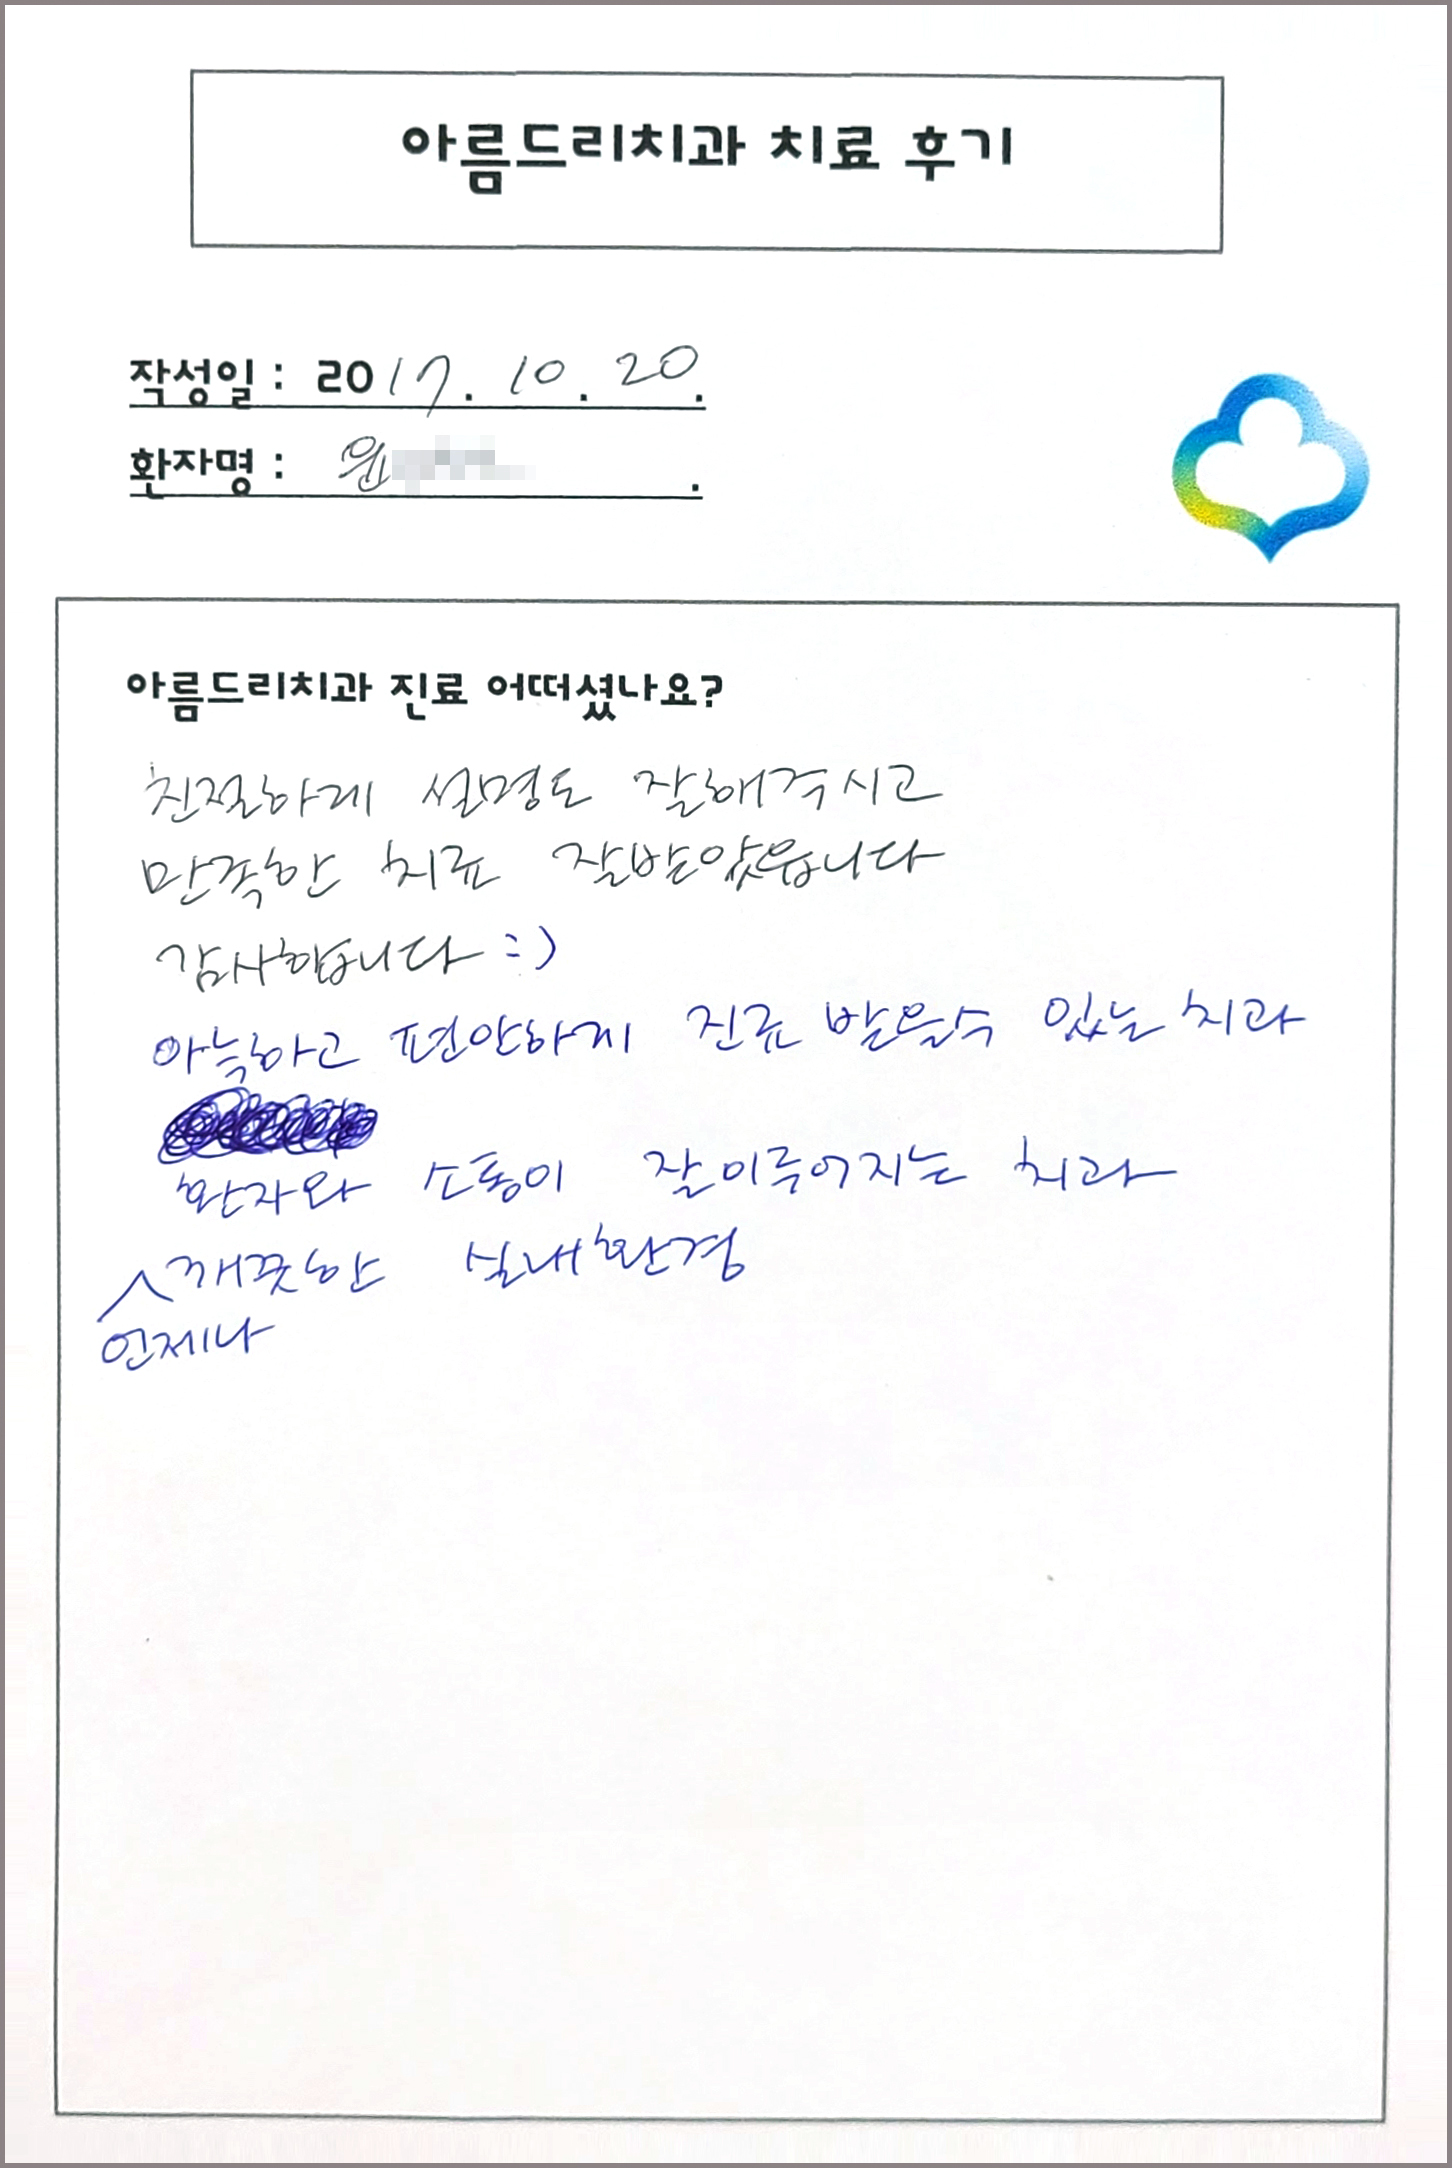 아름드리치과 치료 후기
작성일 : 2017. 10. 20.
환자명 : 원 .
아름드리치과 진료 어떠셨나요?
친절하게 설명도 잘해주시고
만족한 치료 잘받았읍니다
감사합니다 :)
아늑하고 편안하게 진료 받을수 있는 치과
환자와 소통이 잘이루어지는 치과
깨끗한 실내환경
언제나